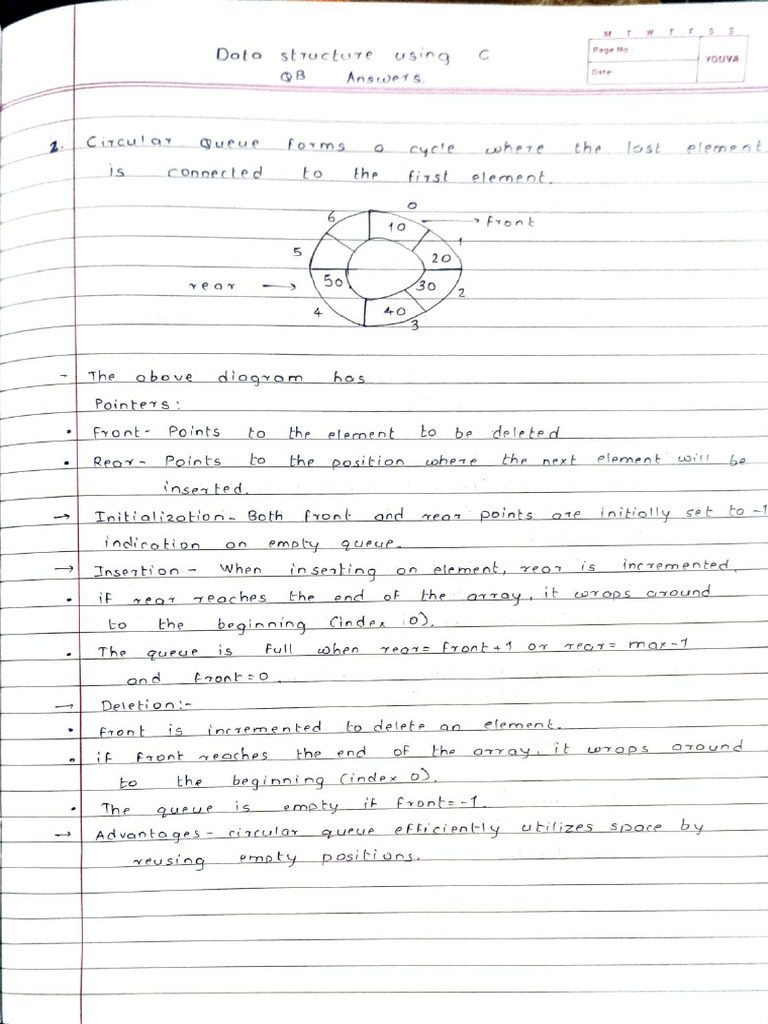 M T W T F S S
Page No.:
Date:
YOUVA
Data structure using C
QB Answers.
1. Circular Queue forms a cycle where the last element
is connected to the first element.
0
6 10 → front
1
5 20
rear → 50 30 2
4 40
3
- The above diagram has
Pointers:
• Front - Points to the element to be deleted
• Rear - Points to the position where the next element will be
inserted.
→ Initialization - Both front and rear points are initially set to -1
indication an empty queue.
→ Insertion - When inserting an element, rear is incremented.
• if rear reaches the end of the array, it wraps around
to the beginning (index 0).
• The queue is full when rear = front + 1 or rear = max - 1
and front = 0.
→ Deletion:-
• Front is incremented to delete an element.
• if front reaches the end of the array, it wraps around
to the beginning (index 0).
• The queue is empty if front = -1.
→ Advantages - circular queue efficiently utilizes space by
reusing empty positions.